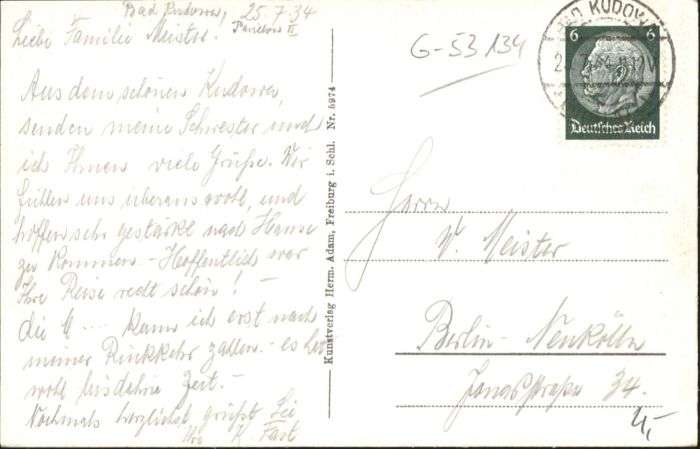 Bad Kudowa, 25.7.34
Liebe Familie Meister.
Aus dem schönen Kudowa,
senden meine Schwester und
ich Ihnen viele Grüße. Wir
fühlen uns überaus wohl, und
hoffen sehr gestärkt nach Hause
zu kommen - Hoffentlich war
Ihre Reise recht schön! -
die 6 .... kann ich erst nach
meiner Rückkehr zahlen. - es hat
wohl bis dahin Zeit. -
Nochmals herzlichst grüßt Sie
K. Fast
Kunstverlag Herm. Adam, Freiburg i. Schl. Nr. 5974
G-53134
BAD KUDOWA
6 6
Deutsches Reich
Herrn
W. Meister
Berlin-Neukölln
Jonasstraße 34.
4,-